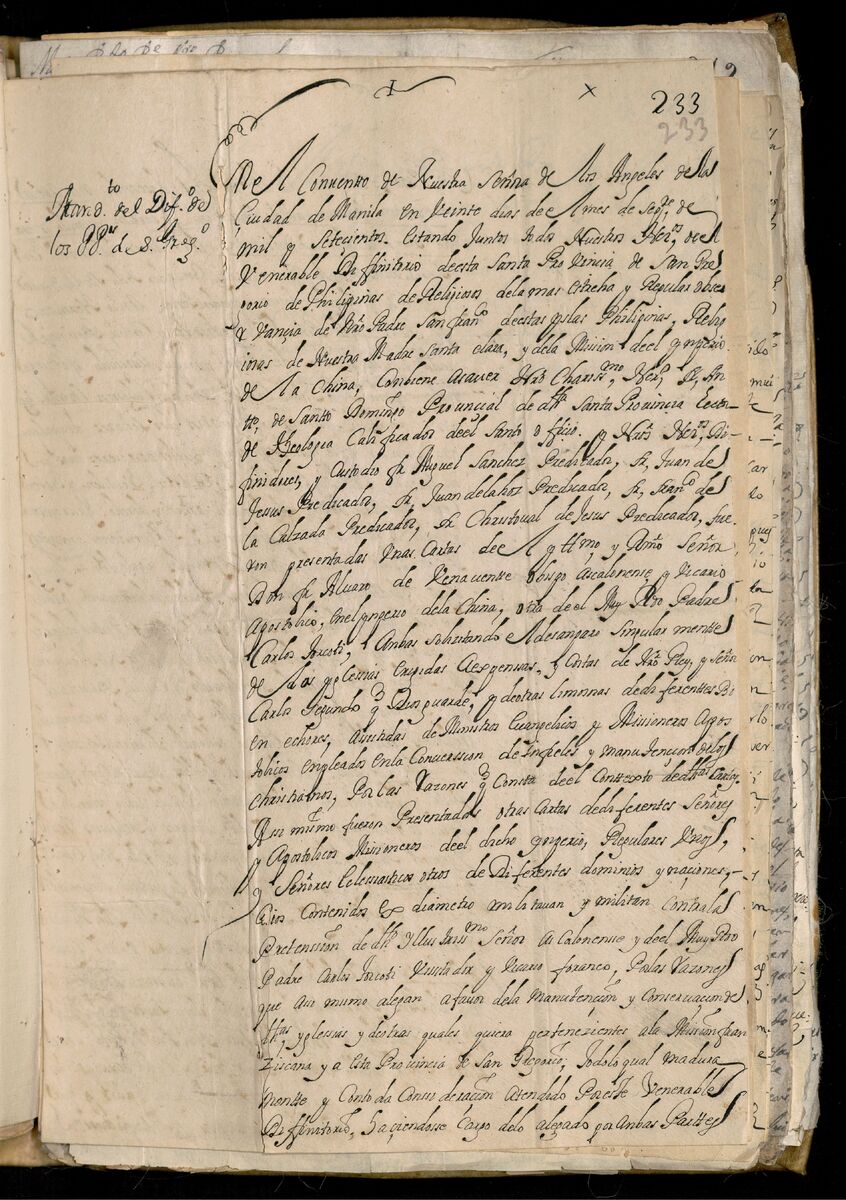 I
x
233
233
Mand.to del Dif.o de
los PP.es de S. Greg.o
En el Convento de Nuestra Señora de los Angeles de la
Ciudad de Manila en Veinte dias de el mes de Sep.e de
mil y Setecientos. estando Juntos todos Nuestros Her.os de el
Venerable Diffinitorio de esta Santa Provincia de San Gre
gorio de Philipinas de Religiosos de la mas estrecha y Regular obser
vançia de Nro Padre San fran.co de estas yslas Philipinas, Relig
iosas de Nuestra Madre Santa clara, y de la Mission de el ymperio
de la China, Conbiene asaver Nro Chariss.mo Her.o fr, An
tto, de Santo Domingo Provincial de dha Santa Provincia Lector
de theologia Calificador de el Santo officio. y Nros Her.os Di
finidores, y Custodio fr Miguel Sanchez Predicador, fr, Juan de
Jesus Predicador, fr, Juan de la Predicador, fr, fran.co de
la Calzada Predicador, fr Christoual de Jesus Predicador, fue
ron presentadas Vnas Cartas de el yllmo y Rmo Señor
Don fr Alvaro de Venauente obispo Ascalonense y Vicario
Apostolico, en el ymperio de la China, otra de el Muy Rdo Padre
Carlos Torcoti, Ambas solicitando el desamparo singularmente
de dos yglessias erigidas a expensas, y Costas de Nro Rey, y Señor
Carlos Segundo q Dios guarde, y de otras limosnas de diferentes Bi
en echores, asistidas de Ministros Euangelicos y Missioneros Apos
tolicos empleados en la Conuerssion de infieles y manutencion de los
christianos, Por las razones q Consta de el Contexto de dhas Cartas
Assi mismo fueron Presentadas otras Cartas de diferentes Señores
y Apostolicos Misioneros de el dicho ymperio, Regulares Vnos,
y Señores Eclesiasticos otros de Diferentes dominios y naciones,
Cuios Contenidos ex diametro militauan y militan Contra la
Pretenssion de dho yllustriss.mo Señor Ascalonense y de el Muy Rdo
Padre Carlos Torcoti Visitador y Vicario foraneo, Por las razones
que assi mismo alegan a fauor de la Manutencion y Conseruacion de
dhas yglessias y de otras quales quiera pertenezientes a la Mission fran
ziscana y a esta Prouincia de San Gregorio; Todo lo qual madura
mente y Con toda Consideracion Atendido Por este Venerable
Diffinitorio, haçiendose Cargo de lo alegado por Ambas Parttes